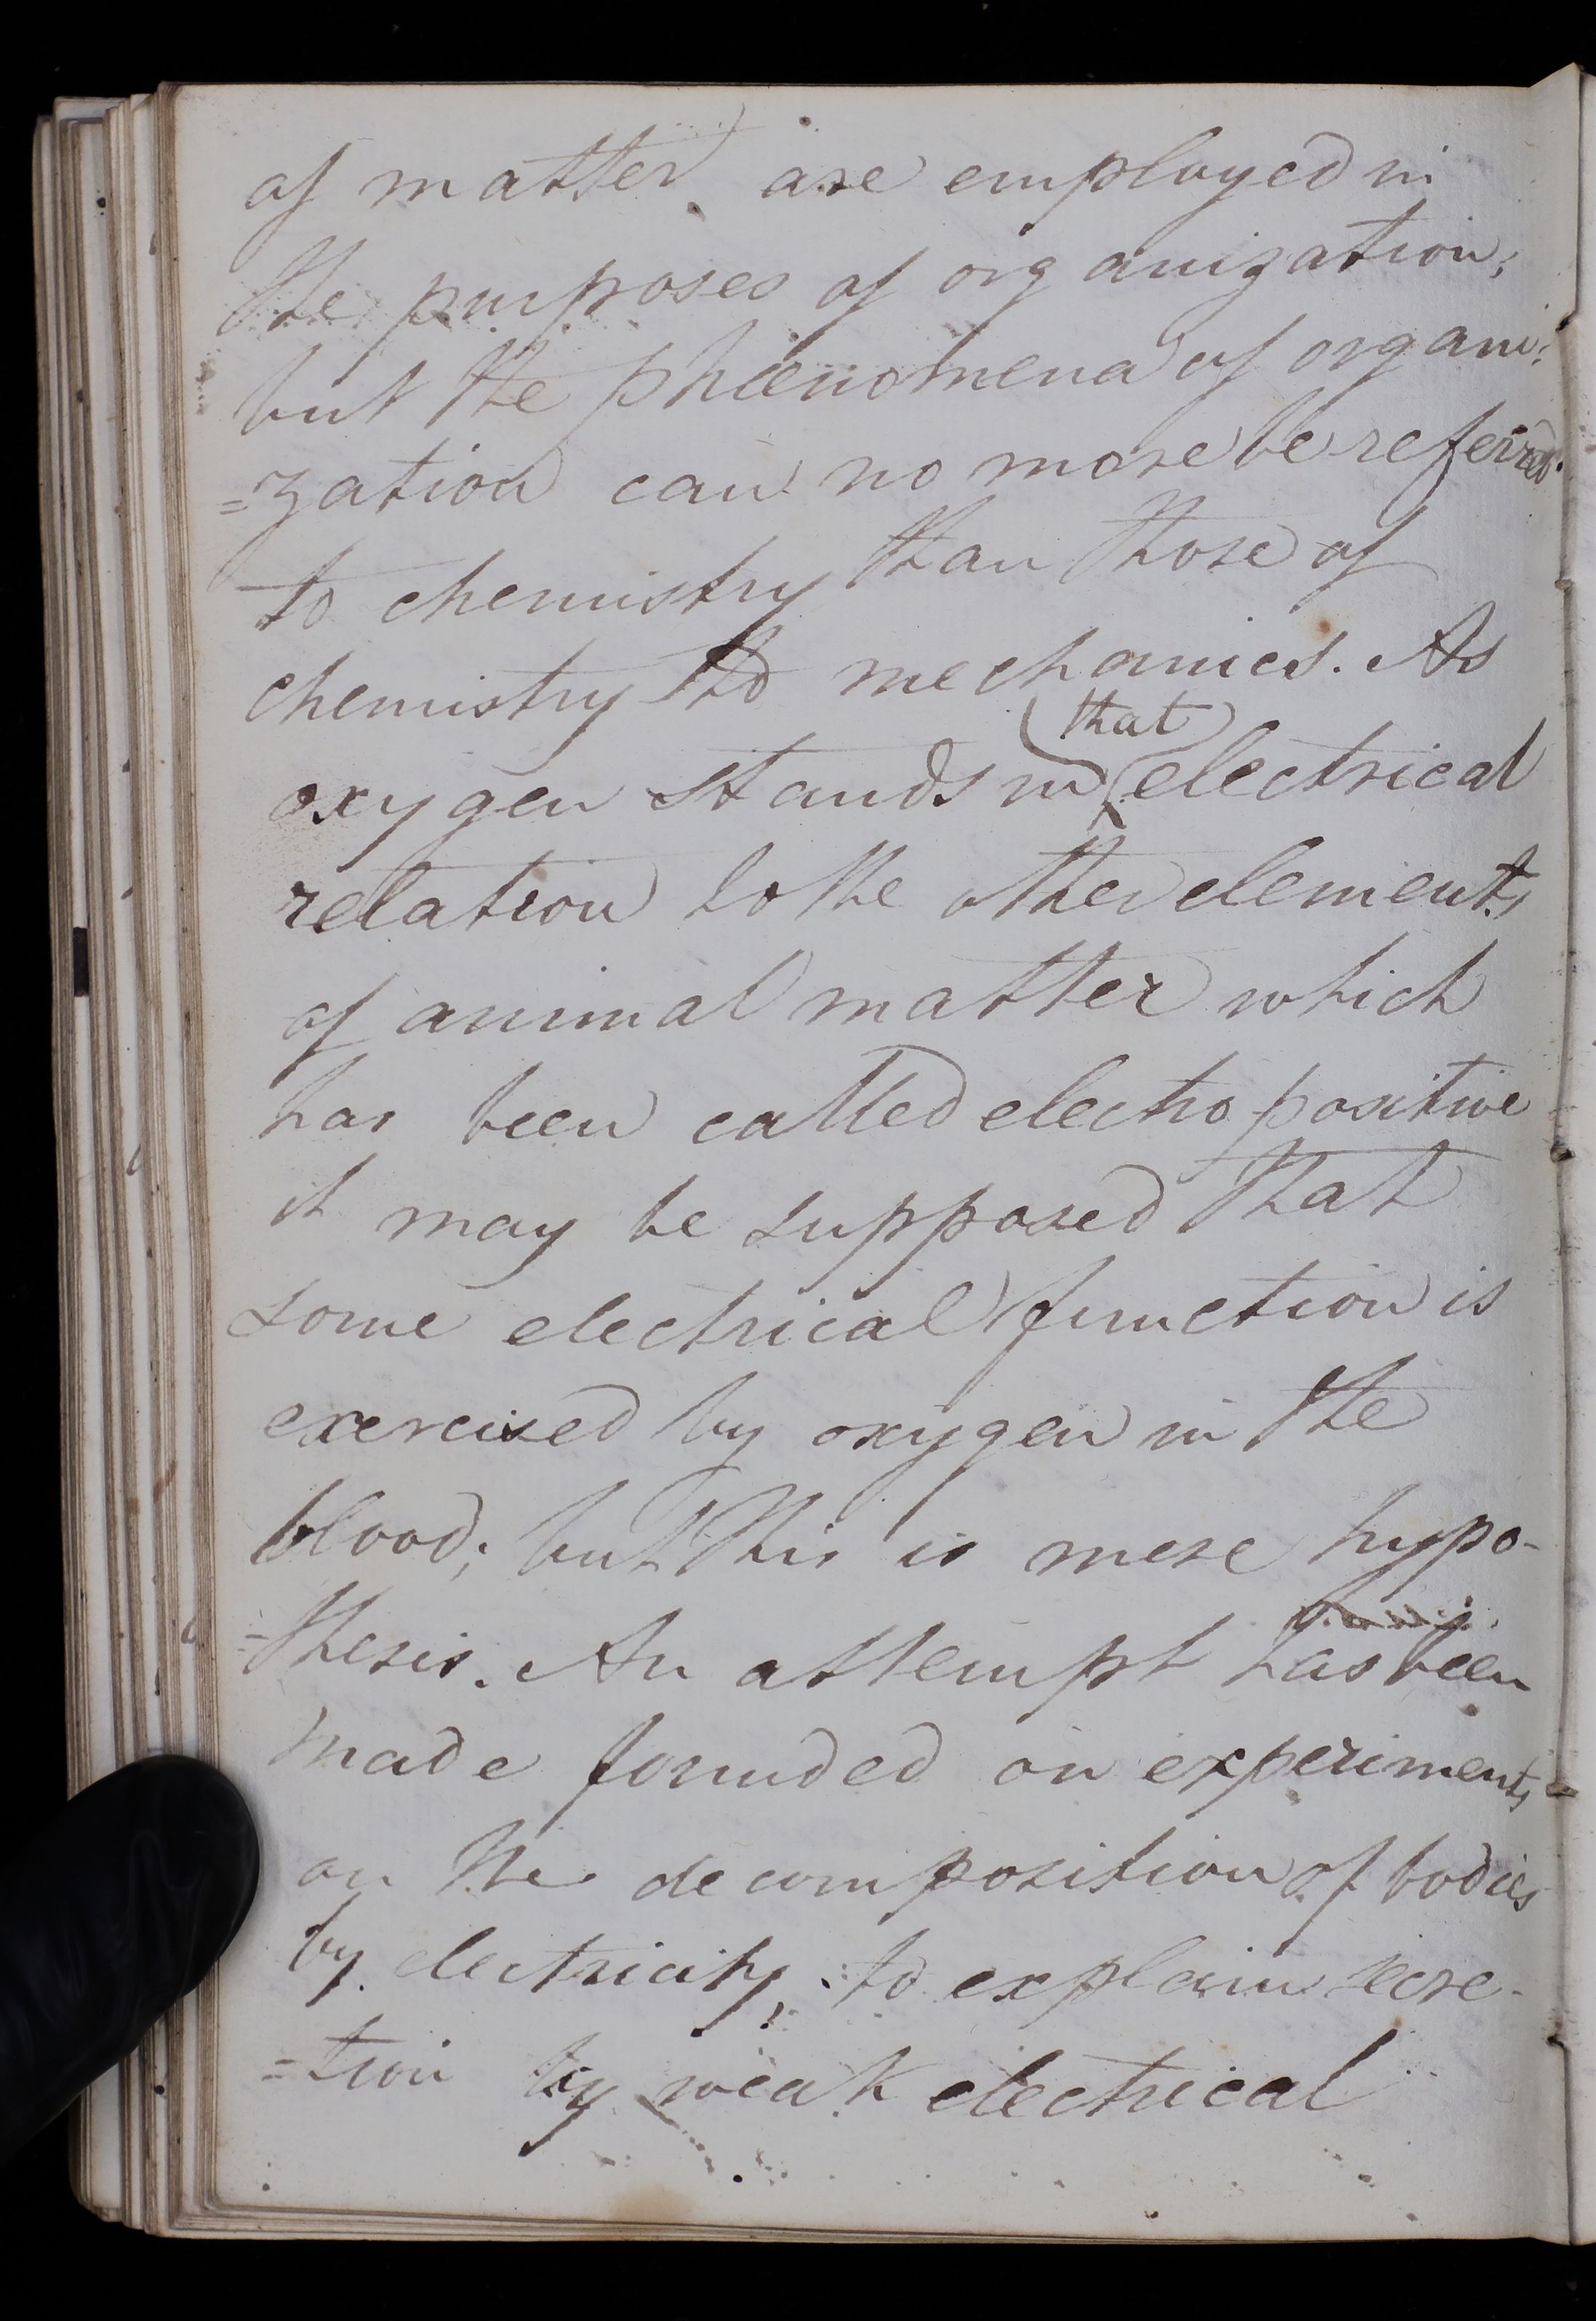 of matter are employed in
the purposes of organization;
but the phœnomena of organi:
=zation can no more be referred
to chemistry than those of
chemistry to mechanics. As
that
oxygen stands in electrical
relation to the other elements
of animal matter which
has been called electro positive
it may be supposed that
some electrical function is
exercised by oxygen in the
blood; but this is mere hypo-
=thesis. An attempt has been
made founded on experiments
on the decomposition of bodies
by electricity, to explain secre-
=tion by weak electrical